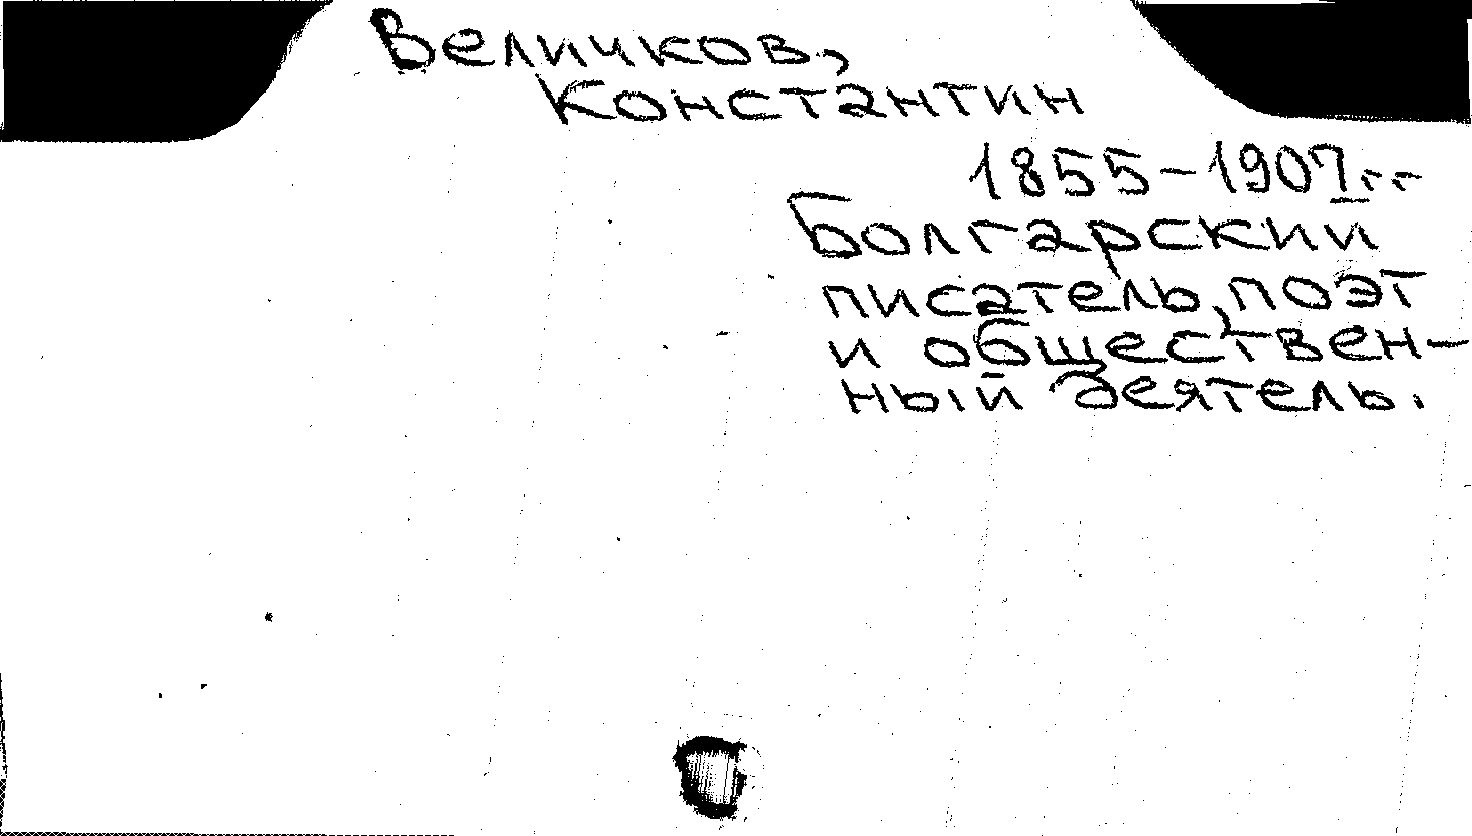 Величков,
Константин
1855-1907г.г.
Болгарский
писатель, поэт
и обществен-
ный деятель.